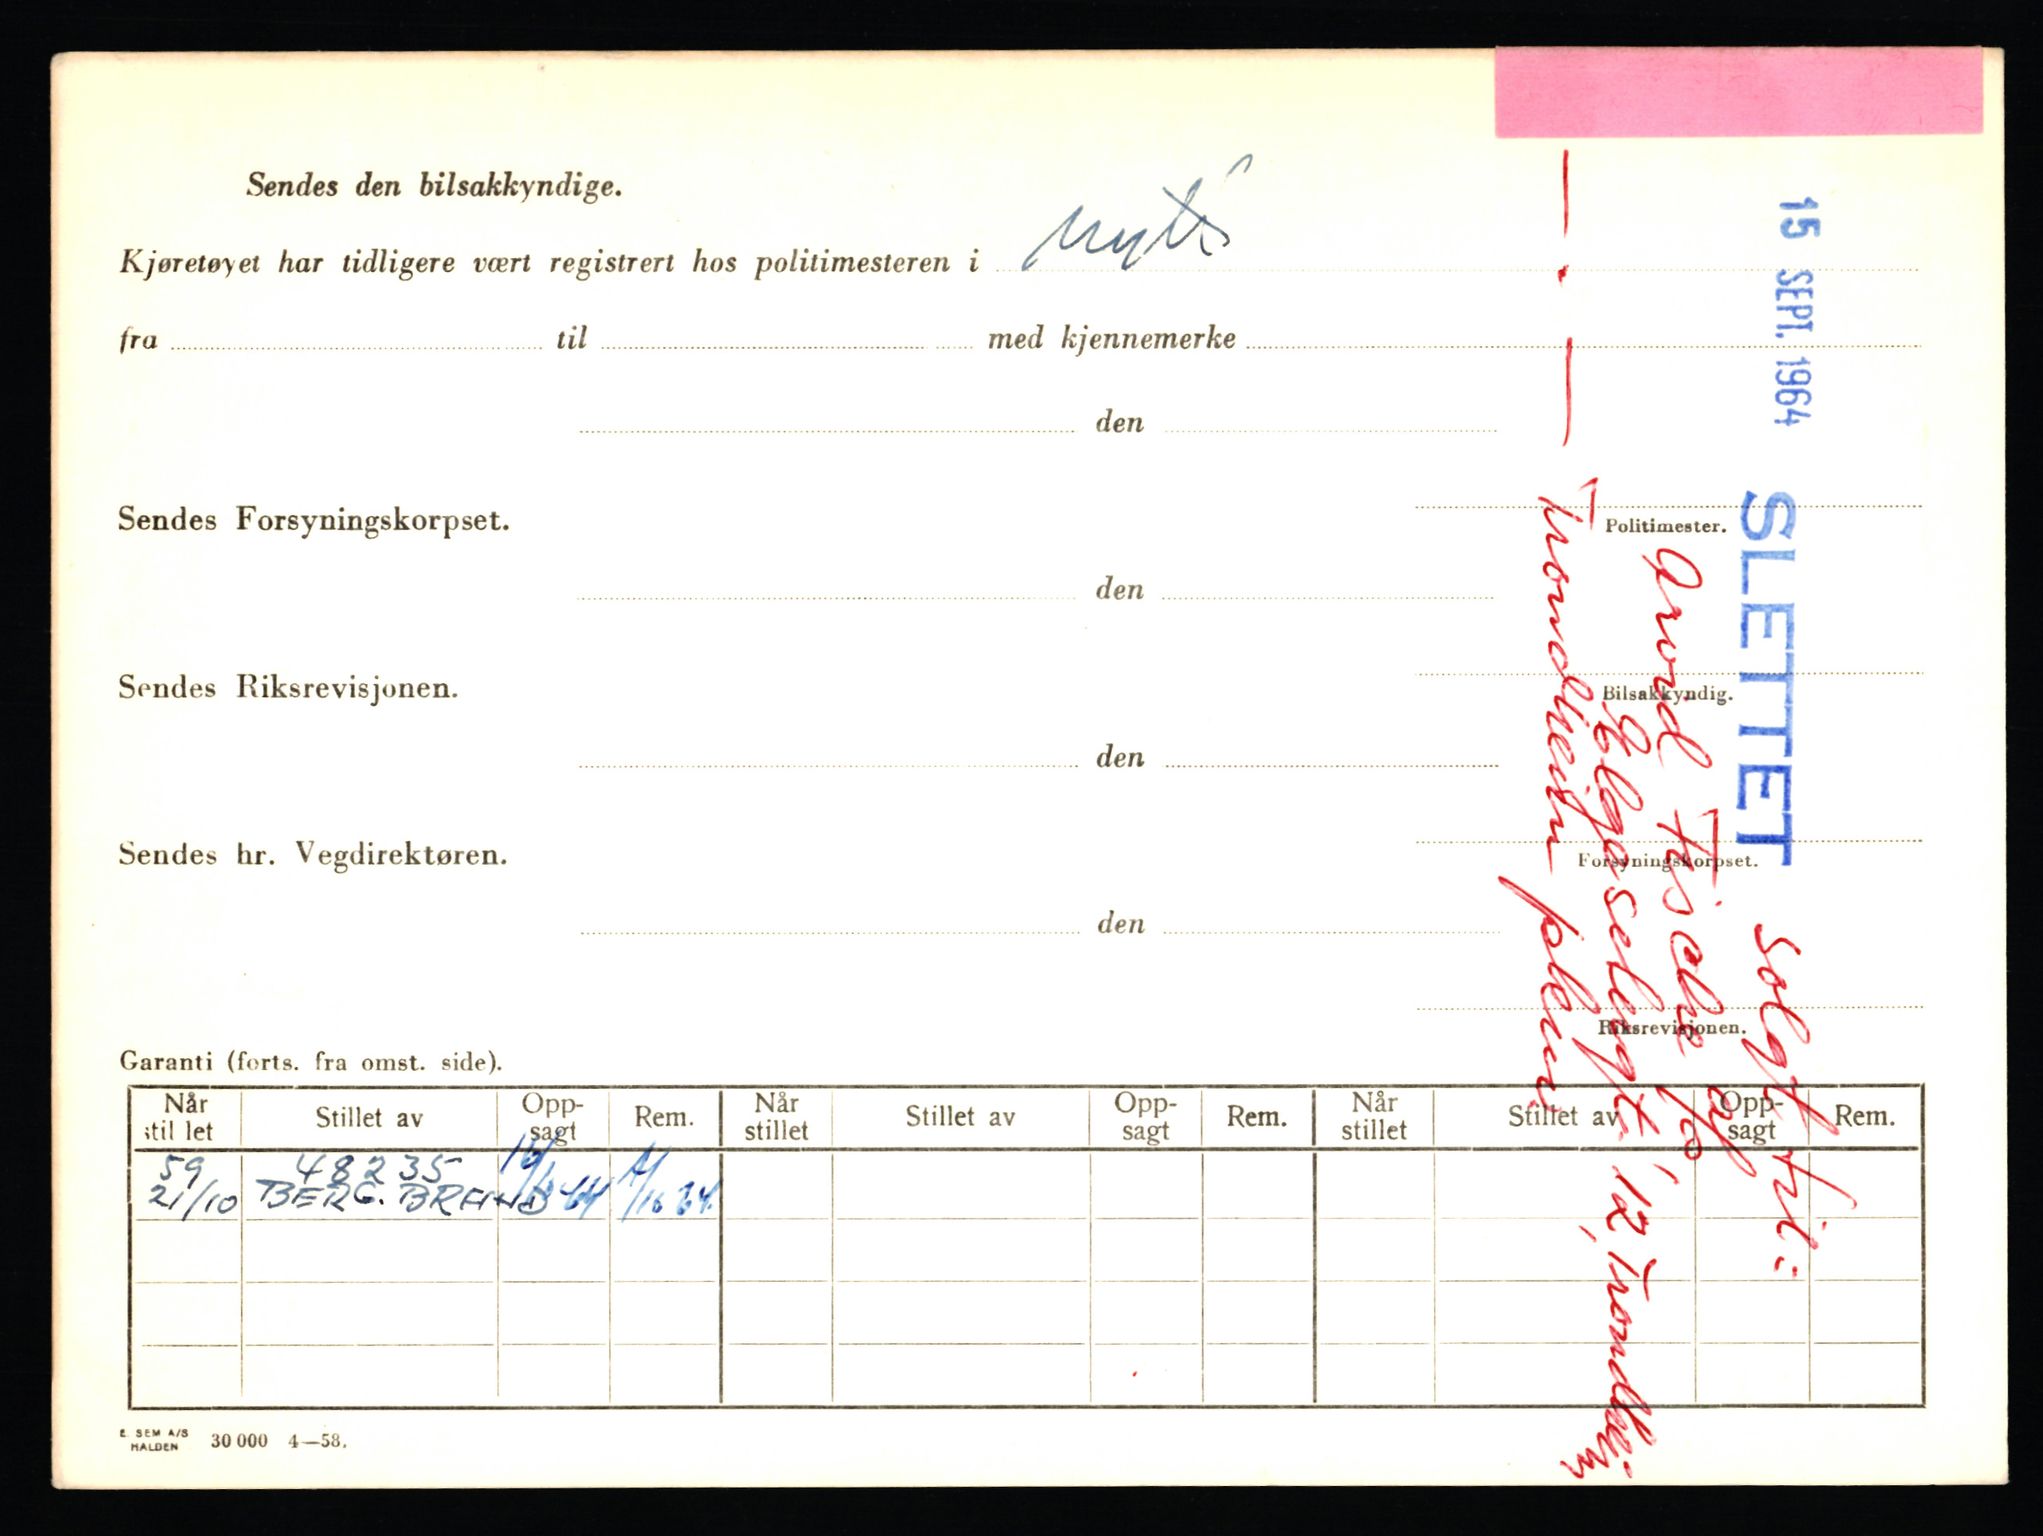 Sendes den bilsakkyndige.
Kjøretøyet har tidligere vært registrert hos politimesteren i nytt
fra til med kjennemerke
den
Politimester.
Sendes Forsyningskorpset.
den
Bilsakkyndig.
Sendes Riksrevisjonen.
den
Forsyningskorpset.
Sendes hr. Vegdirektøren.
den
Riksrevisjonen.
15 SEPT. 1964
SLETTET
Solgt til:
Arvid
Helgesetsgt. 12, Trondheim
Trondheim
Garanti (forts. fra omst. side).
Når stil let Stillet av Opp-sagt Rem. Når stillet Stillet av Opp-sagt Rem. Når stillet Stillet av Opp-sagt Rem.
59 48235
21/10 BERG. BRAND
E. SEM A/S
HALDEN 30 000 4—58.